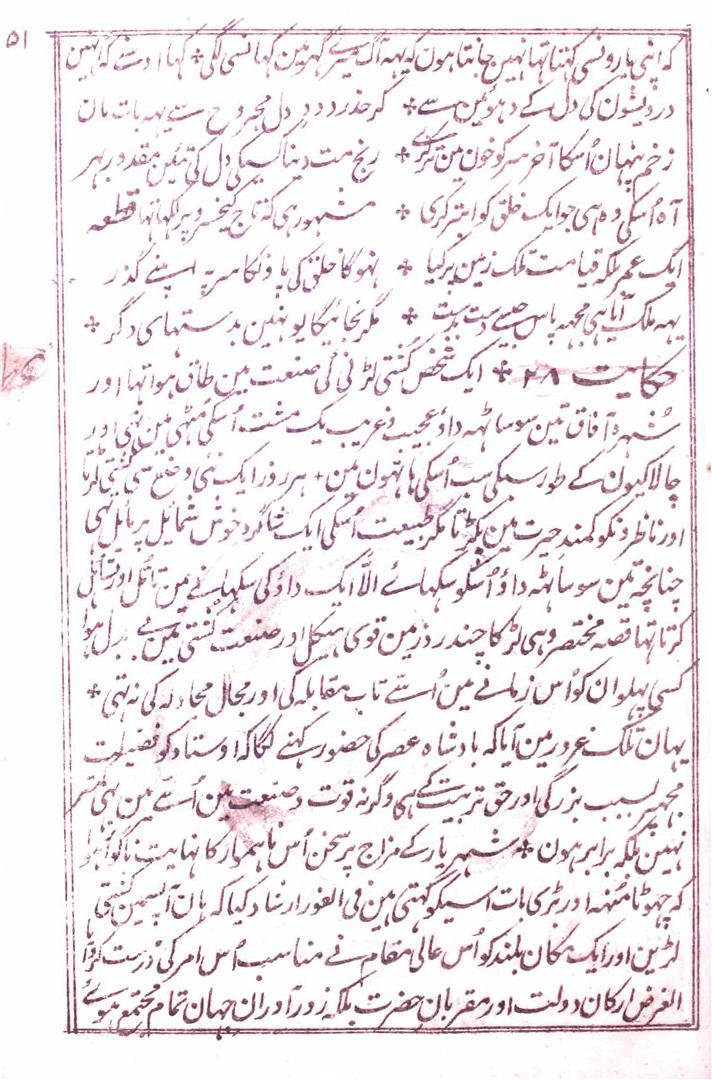 ۵۱
کہ اپنی یارونسی کہتا تہا نہین جانتا ہون کہ یہہ آگ میرے گہر مین کہانسی لگی ٭ کہا اوسنے کہ نہین
درویشون کی دل کے دہوئین سے ٭ کر حذر درد دل مجروح سے یہہ بات مان
زخم پنہان اُسکا آخر سر کو خون مین تر کرے ٭ رنج مت دینا کسیکی دل کی تئین مقدور بہر
آہ اُسکی وہ ہی جو ایک خلق کو ابتر کری ٭ مشہور ہی کہ تاج کیخسرو پر لکہا تہا قطعہ
ایک عمر بلکہ قیامت تلک زمین پر کیا ٭ نہوگا خلق کی پاونکا سر پہ اپنے گذر
یہہ ملک آیا ہی مجہہ پاس جیسے دست بدست ٭ مگر بجائیگا یونہین بدستہای دگر ٭
حکایت ۲۸ ٭ ایک شخص کُشتی لڑنی کی صنعت مین طاق ہوا تہا اور
شُہرہ آفاق تین سو ساٹہہ داؤ عجیب و غریب یک مشت اُسکی مُٹہی مین تہی اور
چالاکیون کے طور سبکی سب اُسکی ہاتہون مین ٭ ہر روز ایک نئی وضع سی کُشتی لڑتا
اور ناظرونکو کمند حیرت مین پکڑتا مگر طبیعت اُسکی ایک شاگرد خوش شمایل پر مایل تہی
چنانچہ تین سو ساٹہہ داؤ اُسکو سکہائے الّا ایک داؤ کی سکہانے مین تأمّل اور تساہل
کرتا تہا قصہ مختصر وہی لڑکا چند روز مین قوی ہیکل اور صنعت کُشتی مین بے بدل ہوا
کسی پہلوان کو اُس زمانے مین اُسے تاب مقابلہ کی اور مجال مجادلہ کی نہ تہی ٭
یہان تلک غرور مین آیا کہ بادشاہ عصر کی حضور کہنے لگا کہ اوستاد کو فضیلت
مجہپر بسبب بزرگی اور حق تربیت کے ہی وگرنہ قوت و صنعت مین اُسے مین بہی کمتر
نہین بلکہ برابر ہون ٭ شہریار کے مزاج پر سخن اُس ناہموار کا نہایت ناگوار ہوا
کہ چہوٹا مُنہہ اور بڑی بات اسیکو کہتی ہین فی الفور ارشاد کیا کہ ہان آپسمین کُشتی
لڑین اور ایک مکان بلند کو اُس عالی مقام نے مناسب اُس امر کی دُرست کروایا
الغرض ارکان دولت اور مقربان حضرت بلکہ زور آوران جہان تمام مجتمع ہوئے